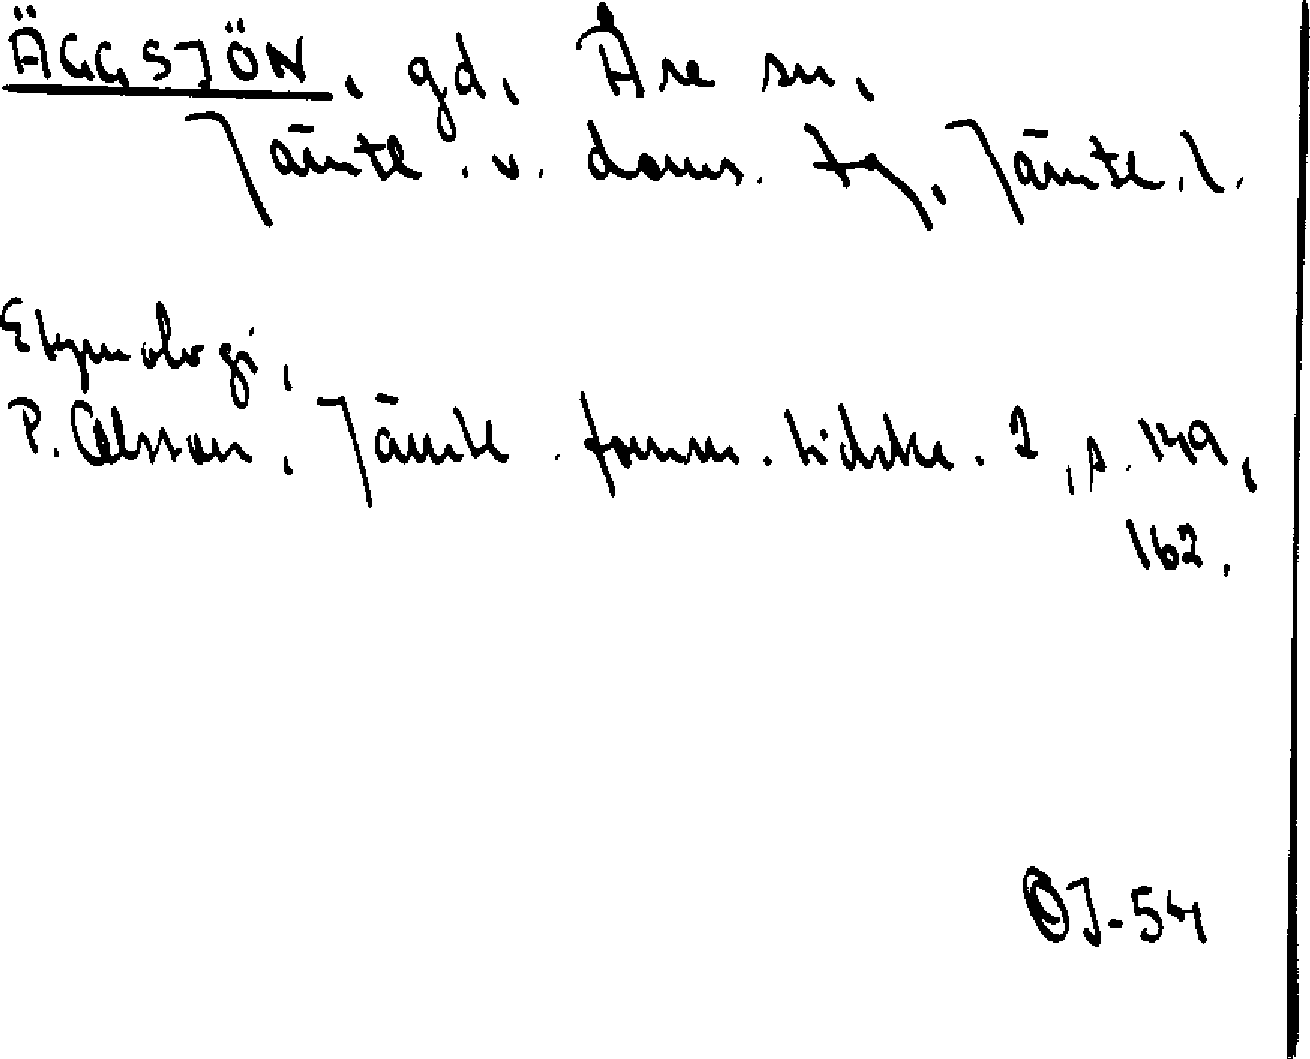 ÄGGSJÖN, gd, Åre sn,
Jämtl. v. doms. tg, Jämtl. l.
Etymologi,
P. Olsson, Jämtl. fornm. tidskr. 2, s. 149,
162.
OJ-54